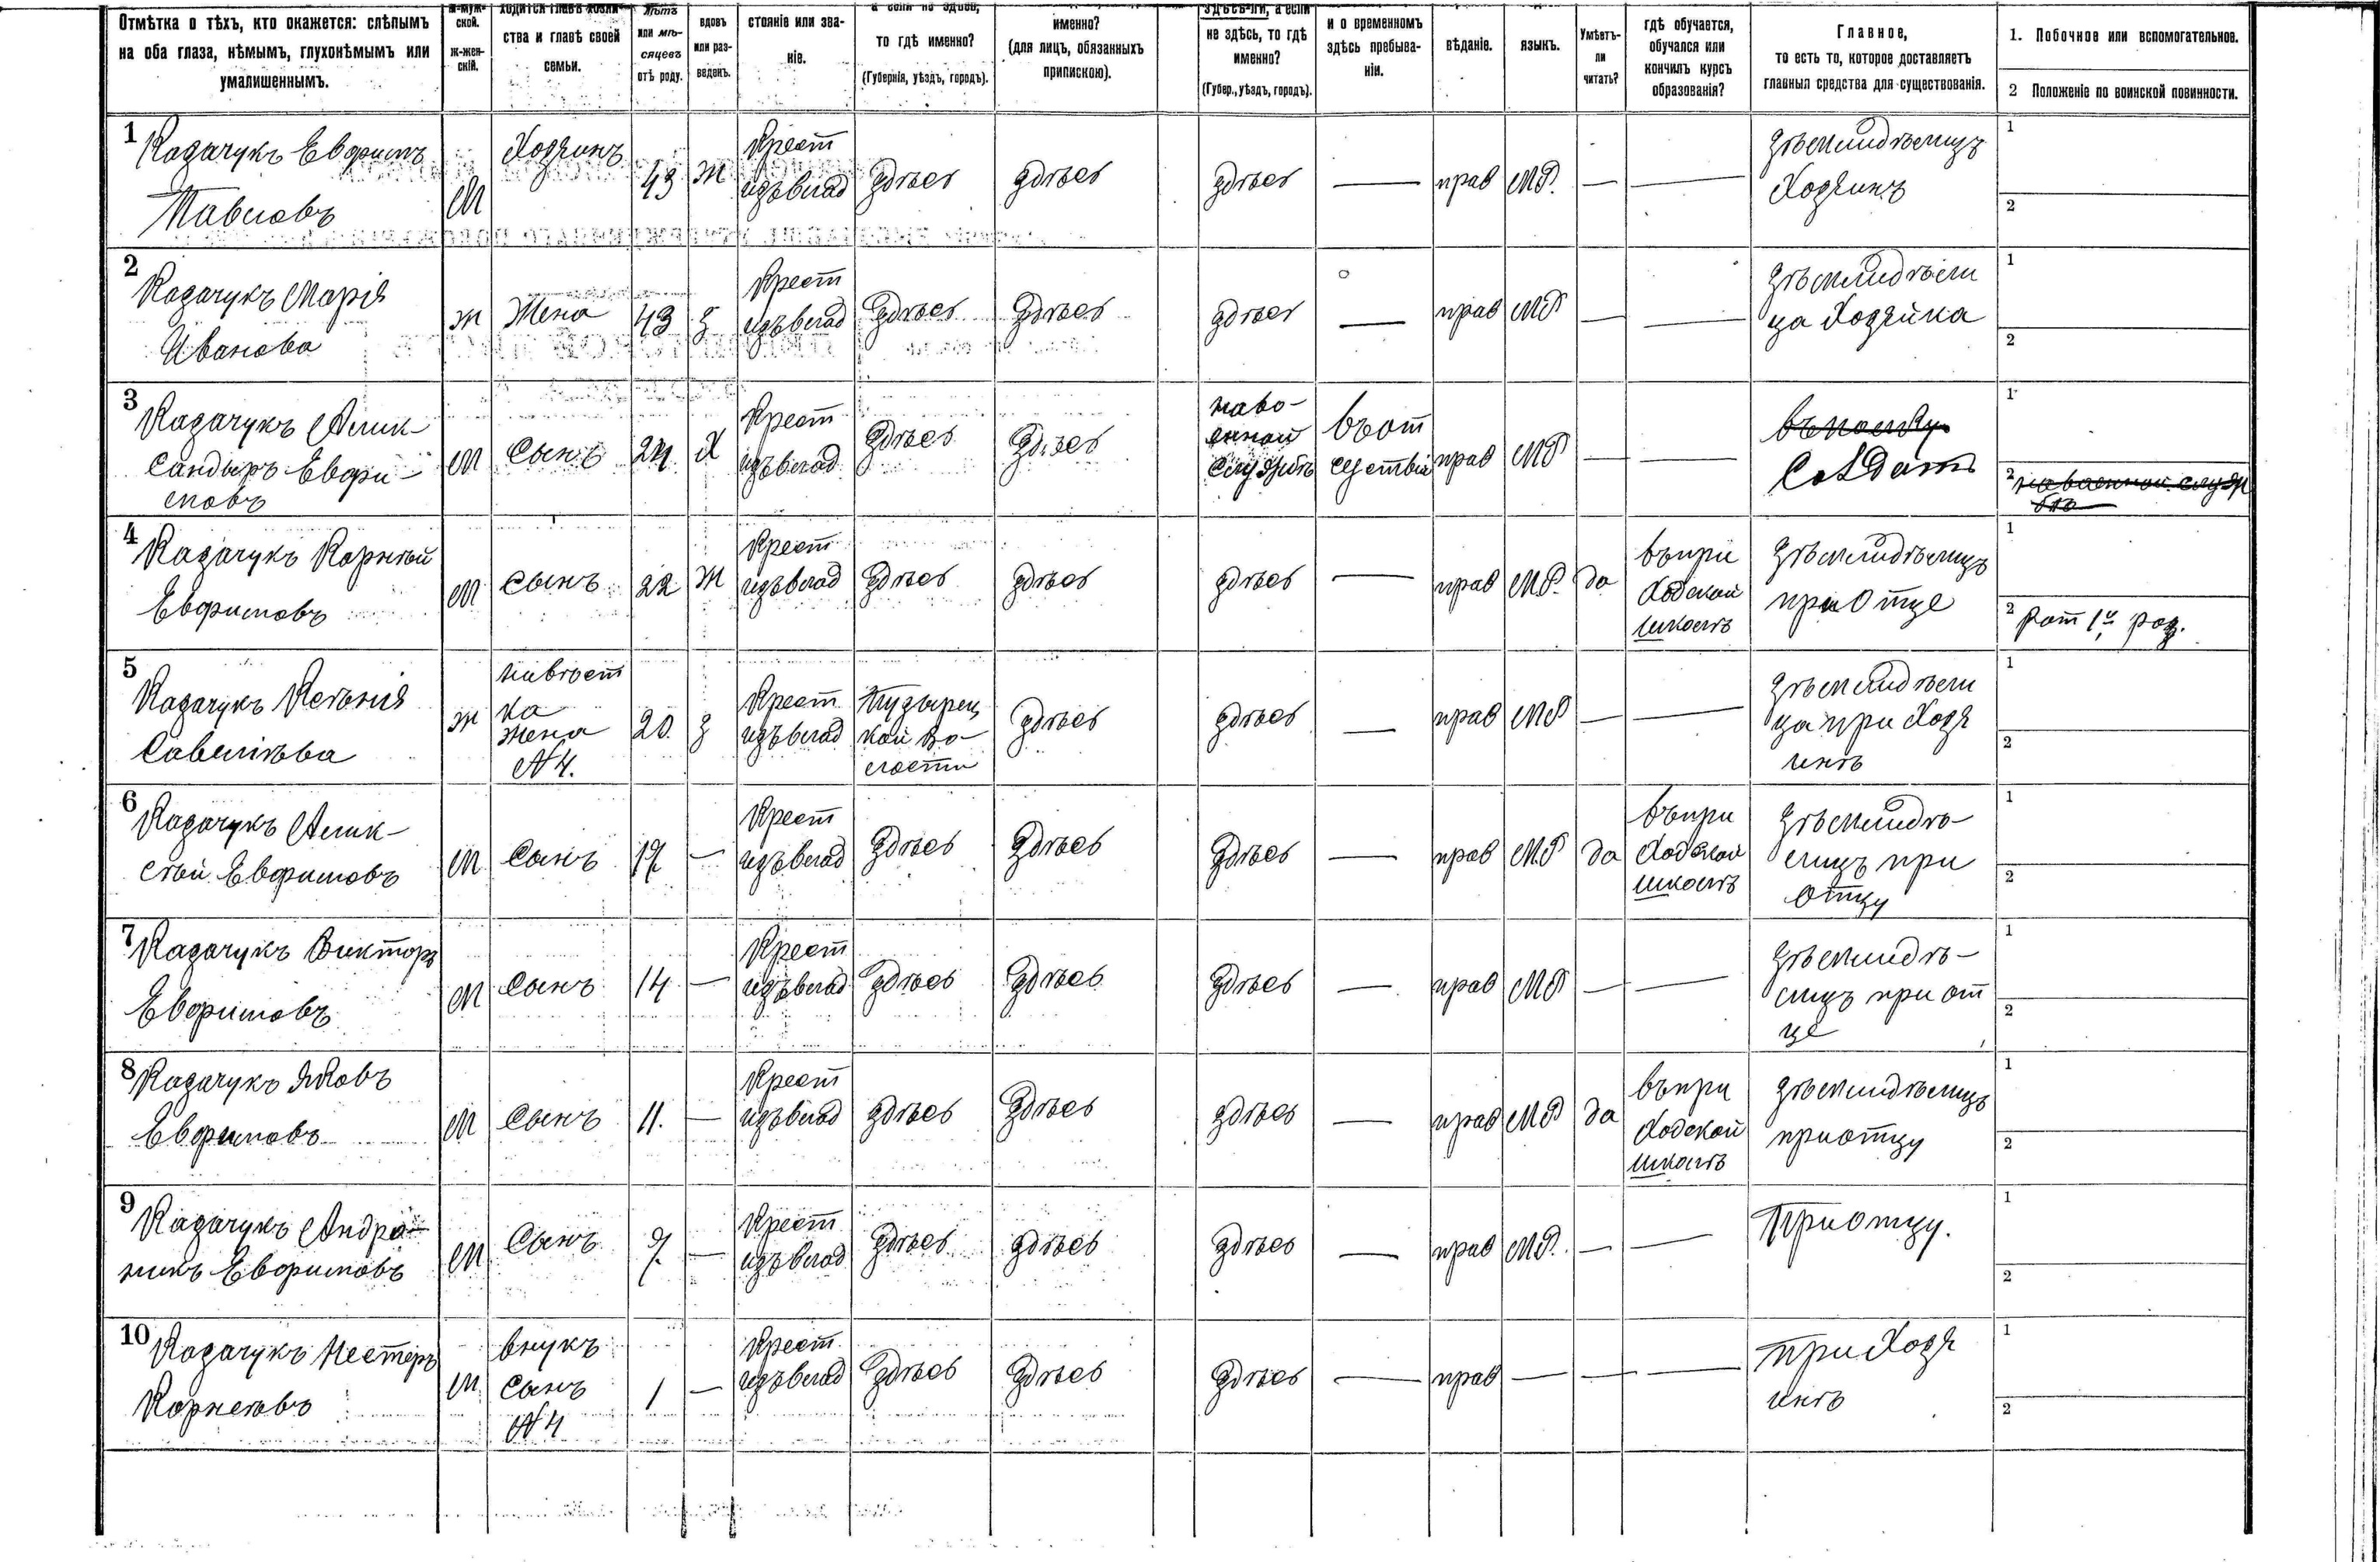 Отмѣтка о тѣхъ, кто окажется: слѣпымъ
на оба глаза, нѣмымъ, глухонѣмымъ или
умалишеннымъ.
м-муж-
ской.
ж-жен-
скій.
ства и главѣ своей
семьи.
Лѣтъ
или мѣ-
сяцевъ
отъ роду.
вдовъ
или раз-
веденъ.
стояніе или зва-
ніе.
то гдѣ именно?
(Губернія, уѣздъ, городъ).
именно?
(для лицъ, обязанныхъ
припискою).
здѣсь-ли, а если
не здѣсь, то гдѣ
именно?
(Губер., уѣздъ, городъ).
и о временномъ
здѣсь пребыва-
ніи.
вѣданіе.
языкъ.
Умѣетъ-
ли
читать?
гдѣ обучается,
обучался или
кончилъ курсъ
образованія?
Главное,
то есть то, которое доставляетъ
главныя средства для существованія.
1. Побочное или вспомогательное.
2 Положеніе по воинской повинности.
1
Казачукъ Евфимъ
Павловъ
М
Хозяинъ
43
Ж
Крест
изъвлад
здѣсь
здѣсь
здѣсь
—
прав
МР.
—
—
Хозяинъ
1
2
2
Казачукъ Марія
Иванова
ж
Жена
43
З
Крест
изъвлад
здѣсь
здѣсь
здѣсь
—
прав
МР
—
—
ца Хозяйка
1
2
3
Казачукъ Алик-
сандыръ Евфи-
мовъ
М
Сынъ
24
Х
Крест
изъвлад
здѣсь
здѣсь
наво-
енной
службѣ
въот
прав
МР
—
—
Солдатъ
1
2
4
Казачукъ Корнѣй
Евфимовъ
М
Сынъ
22
Ж
Крест
изъвлад
здѣсь
здѣсь
здѣсь
—
прав
МР.
да
въпри
ходской
школѣ
приотце
1
2
Рат 1й раз.
5
Казачукъ
Савелиѣва
ж
нивѣст
ка
жена
№4.
20.
З
Крест
изъвлад
кой во-
лости
здѣсь
здѣсь
—
прав
МР
—
—
ца при Хозя
инѣ
1
2
6
Казачукъ Алик-
сѣй Евфимовъ
М
Сынъ
17
—
Крест
изъвлад
здѣсь
здѣсь
здѣсь
—
прав
МР
да
въпри
ходской
школѣ
зъмлидѣ-
лицъ при
отцу
1
2
7
Казачукъ Викторъ
Евфимовъ
М
Сынъ
14
—
Крест
изъвлад
здѣсь
здѣсь
здѣсь
—
прав
МР
—
—
зъмлидѣ-
лицъ при от
це
1
2
8
Казачукъ Яковъ
Евфимовъ
М
Сынъ
11.
—
Крест
изъвлад
здѣсь
здѣсь
здѣсь
—
прав
МР
да
въпри
ходской
школѣ
приотцу
1
2
9
Казачукъ Андро-
никъ Евфимовъ
М
Сынъ
7.
—
Крест
изъвлад
здѣсь
здѣсь
здѣсь
—
прав
МР.
—
—
Приотцу.
1
2
10
Казачукъ Нестеръ
Корнеѣвъ
М
внукъ
Сынъ
№4
1
—
Крест
изъвлад
здѣсь
здѣсь
здѣсь
—
прав
—
—
—
при Хозя
инѣ
1
2